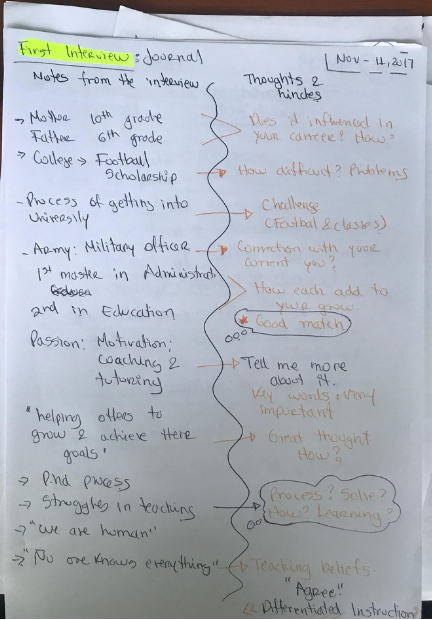 First Interview: Journal
Nov - 11, 2017
Notes from the interview
Thoughts &
hindes
→ Mother 10th grade
Father 6th grade
Does it influenced in
your carreer? How?
→ College → Football
Scholarship
How difficult? Problems
- Process of getting into
University
Challenge
(Footbal & classes)
- Army: Military officer
Connection with your
current you?
1st master in Administrati
2nd in Education
How each add to
your grow
* Good match
Passion: Motivation:
coaching &
tutoring
Tell me more
about it.
Key words: very
important
"helping others to
grow & achieve there
goals"
Great thought
How?
→ P.hd process
→ Struggles in teaching
Process? Solve?
How? Learning?
→ "we are human"
→ "No one knows everything"
Teaching beliefs.
"Agree"
Differentiated Instruction